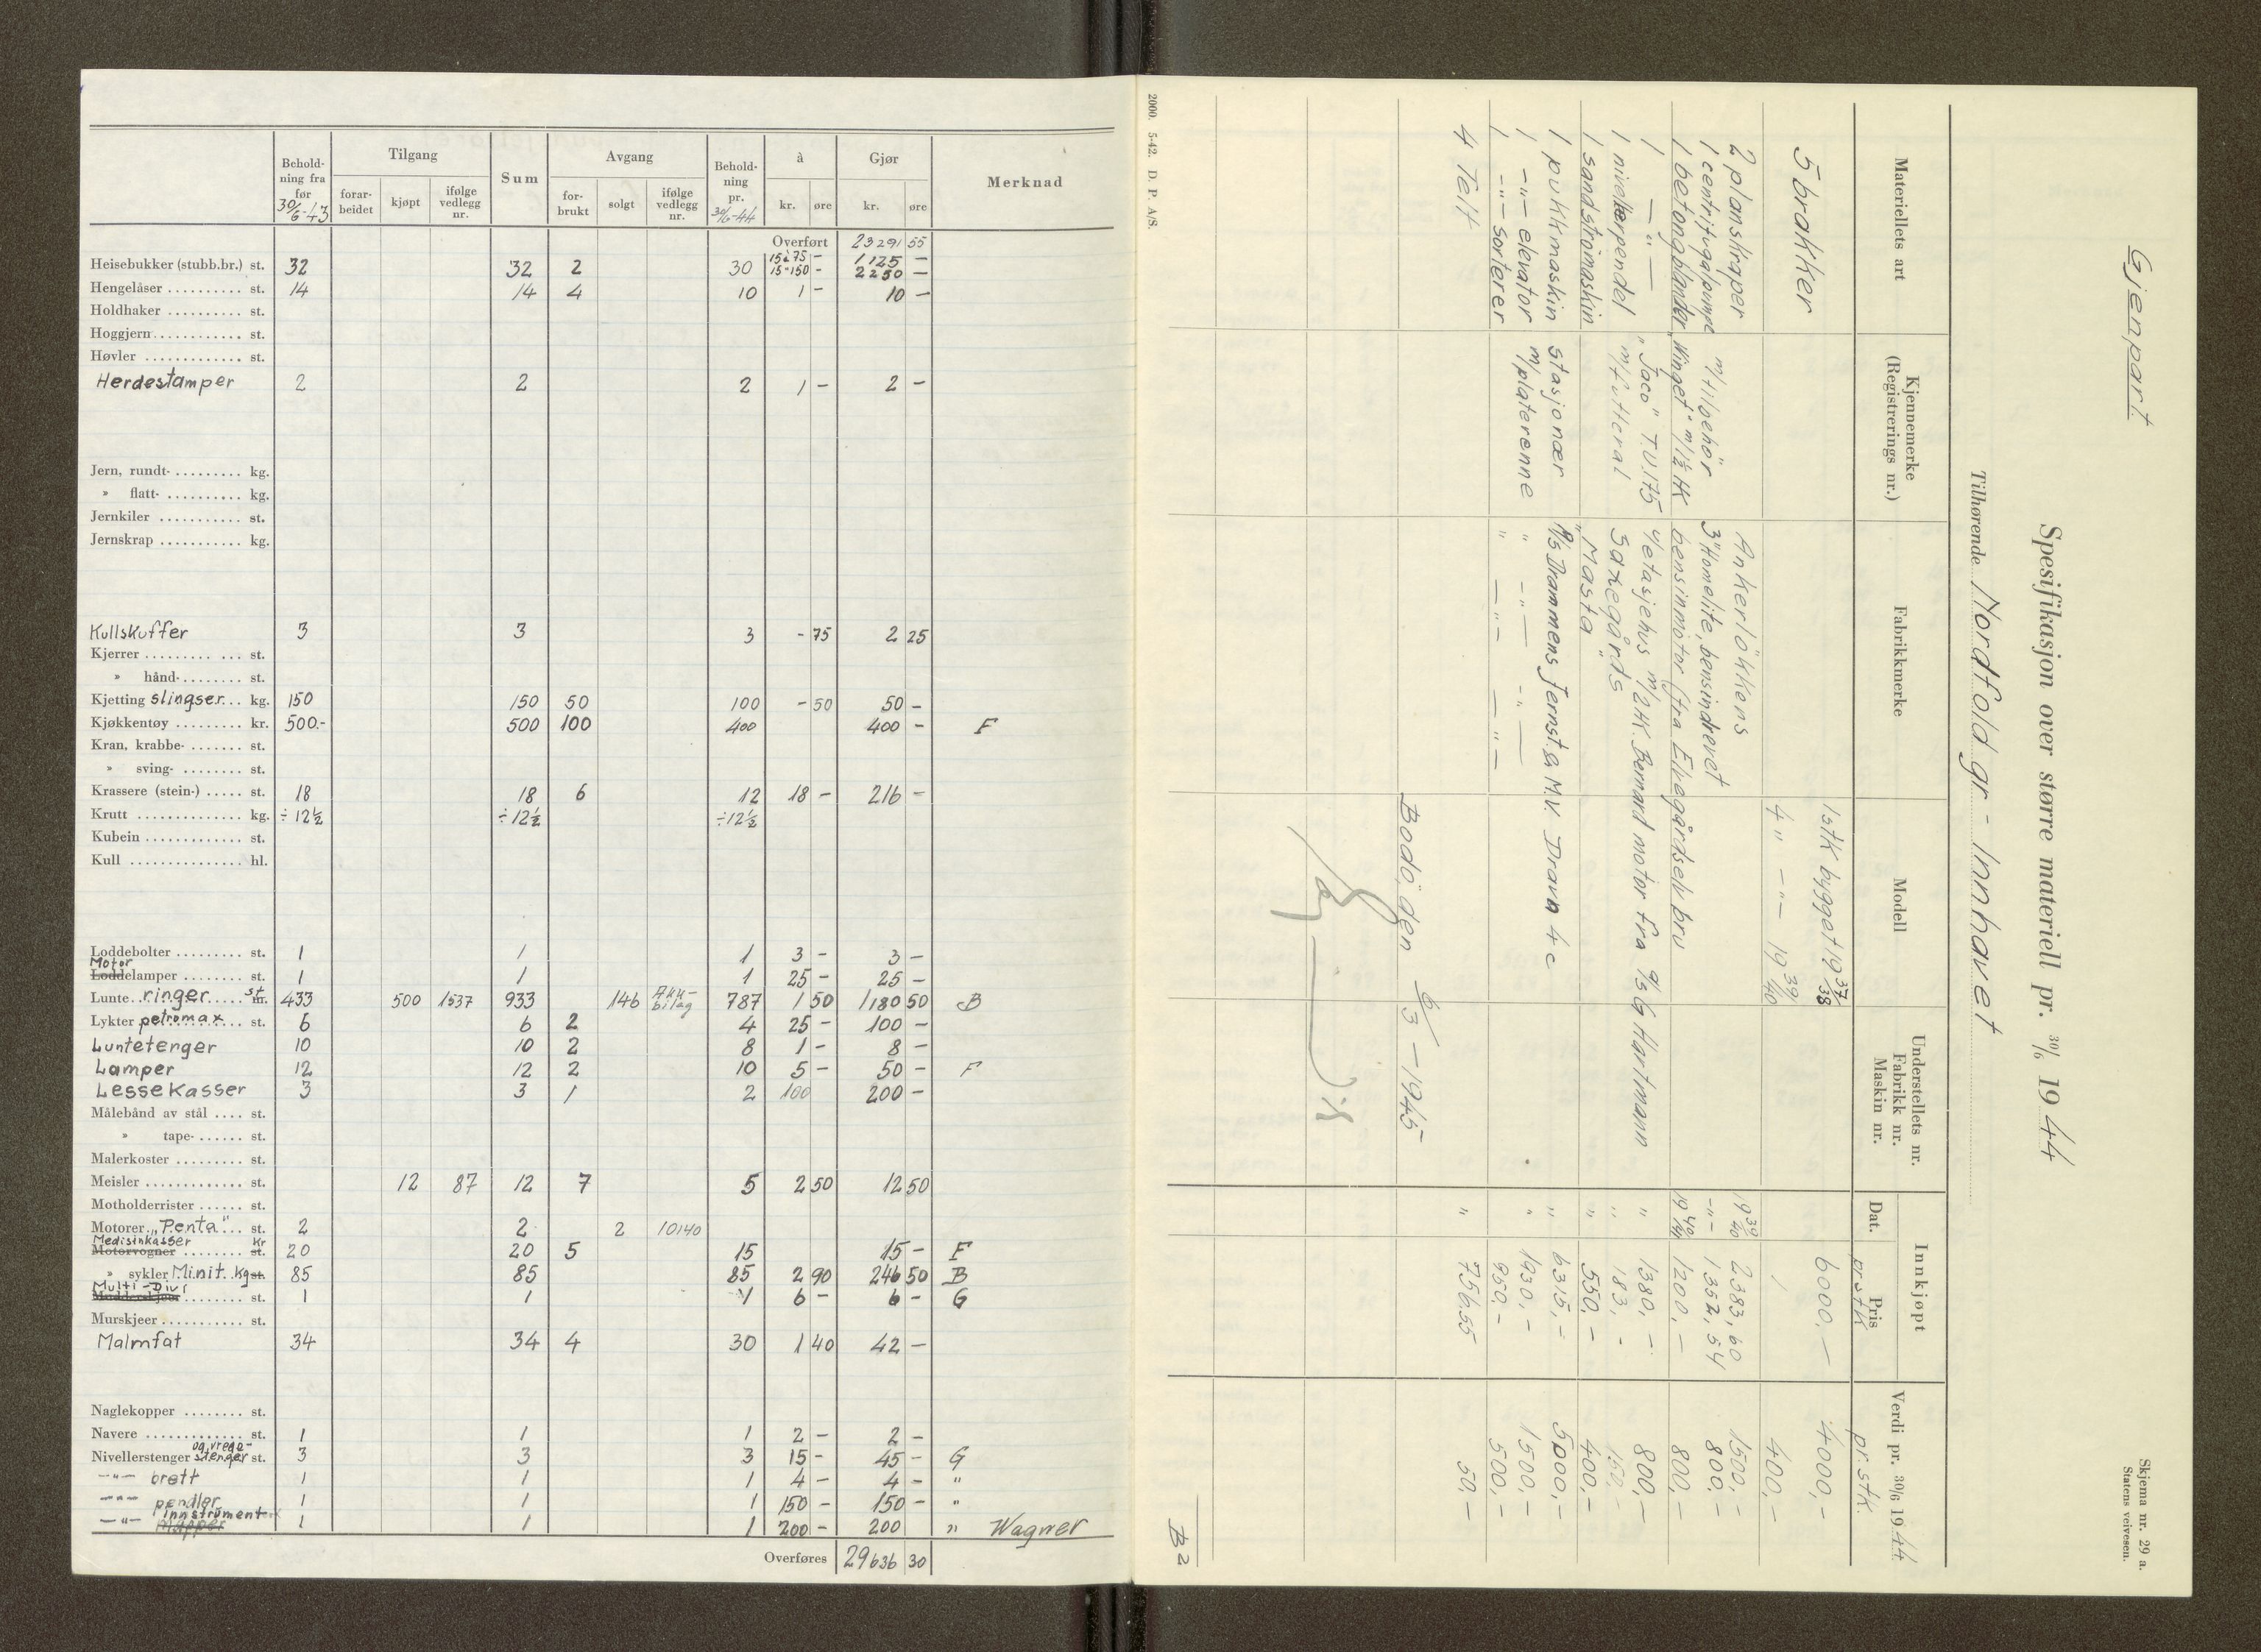 Behold-
ning fra
før
30/6-43
Tilgang
forar-
beidet
kjøpt
ifølge
vedlegg
nr.
Sum
Avgang
for-
brukt
solgt
ifølge
vedlegg
nr.
Behold-
ning
pr.
30/6-44
à
kr. øre
Gjør
kr. øre
Merknad
Overført 23291 55
Heisebukker (stubb.br.) st. 32 32 2 30 15à75 - 1125 -
15"150 - 2250 -
Hengelåser .......... st. 14 14 4 10 1 - 10 -
Holdhaker .......... st.
Hoggjern ............ st.
Høvler ............. st.
Herdestamper 2 2 2 1 - 2 -
Jern, rundt- ......... kg.
» flatt- .......... kg.
Jernkiler ........... st.
Jernskrap ........... kg.
Kullskuffer 3 3 3 - 75 2 25
Kjerrer ......... ... st.
» hånd- ........ st.
Kjetting slingser... kg. 150 150 50 100 - 50 50 -
Kjøkkentøy ......... kr. 500.- 500 100 400 400 - F
Kran, krabbe- ....... st.
» sving- ........ st.
Krassere (stein-) ..... st. 18 18 6 12 18 - 216 -
Krutt .............. kg. ÷ 12½ ÷ 12½ ÷ 12½
Kubein ............. st.
Kull ............... hl.
Loddebolter ......... st. 1 1 1 3 - 3 -
Motor
Loddelamper ........ st. 1 1 1 25 - 25 -
Lunte..ringer.... st. m. 433 500 1537 933 146 Akk-bilag 787 1 50 1180 50 B
Lykter petromax .. st. 6 6 2 4 25 - 100 -
Luntetenger 10 10 2 8 1 - 8 -
Lamper 12 12 2 10 5 - 50 - F
Lessekasser 3 3 1 2 100 200 -
Målebånd av stål .... st.
» tape- ...... st.
Malerkoster ......... st.
Meisler ............. st. 12 87 12 7 5 2 50 12 50
Motholderrister ...... st.
Motorer „Penta".. st. 2 2 2 10140
Medisinkasser Kr
Motorvogner ........ st. 20 20 5 15 15 - F
» sykler Minit. kg st. 85 85 85 2 90 246 50 B
Multi-Divi
........ st. 1 1 1 6 - 6 - G
Murskjeer ........... st.
Malmfat 34 34 4 30 1 40 42 -
Naglekopper ........ st.
Navere ............. st. 1 1 1 2 - 2 -
Nivellerstenger stenger st. 3 3 3 15 - 45 - G
-"- brett 1 1 1 4 - 4 - "
-"- pendler 1 1 1 150 - 150 - "
innstrument
-"- 1 1 1 200 - 200 " Wagner
Overføres 29636 30
Gjenpart.
Skjema nr. 29 a.
Statens veivesen.
Spesifikasjon over større materiell pr. 30/6 1944
Tilhørende Nordfold gr - Innhavet
Materiellets art
Kjennemerke
(Registrerings nr.)
Fabrikkmerke
Modell
Understellets nr.
Fabrikk nr.
Maskin nr.
Innkjøpt
Dat.
Pris
pr stk
Verdi pr. 30/6 1944
pr. stk.
5 brakker 1 stk bygget 1937/38 6000,- 4000,-
4 " -"- 1939/40 400,-
2 planskraper Ankerløkkens 1939/40 2383,60 1500,-
1 centrifugalpumpe m/tilbehør 3" Homelite, bensindrevet -"- 1.352,54 800,-
1 betongblander „Winget" m/1½ HK bensinmotor (fra Elvegårdselv bru 1940/41 1200,- 800,-
1 -"- "Jaco" T.V.175 Vetasjehus m/2HK. Bernard motor fra A/S G Hartmann " 1380,- 800,-
1 nivellerpendel m/futteral Saxegårds " 183,- 150,-
1 sandstrømaskin "Masta" " 550,- 400,-
1 pukkmaskin stasjonær A/S Drammens Jernst. & M.V. Drava 4 c " 6315,- 5000,-
1 -"- elevator m/platerenne " -"- -"- " 1930,- 1500,-
1 -"- sorterer " -"- -"- 950,- 500,-
4 Telt " 756.55 50.-
Bodø, den 6/3 - 1945
B2
2000. 5-42. D. P. A/S.